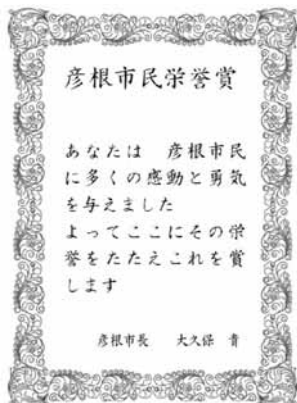 彦根市民栄誉賞
あなたは　彦根市民
に多くの感動と勇気
を与えました
よってここにその栄
誉をたたえこれを賞
します
彦根市長　大久保　貴